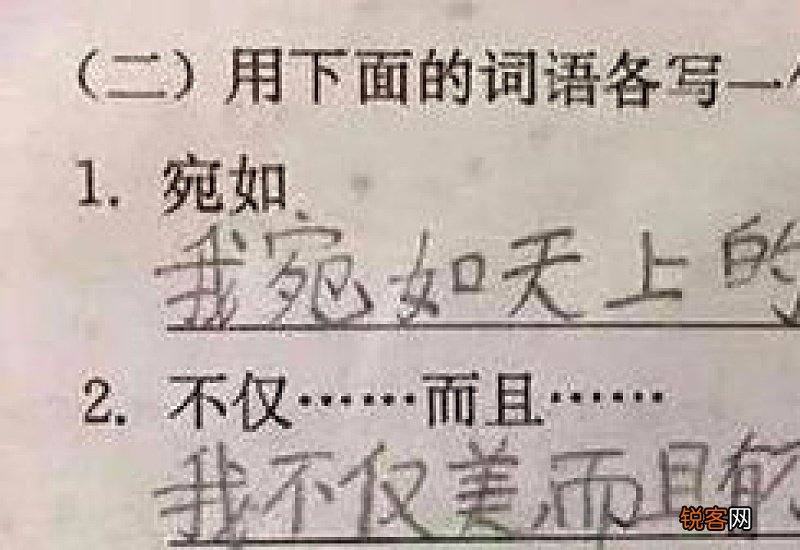 （二）用下面的词语各写一
1. 宛如
我宛如天上的
2. 不仅……而且……
我不仅美,而且
锐客网